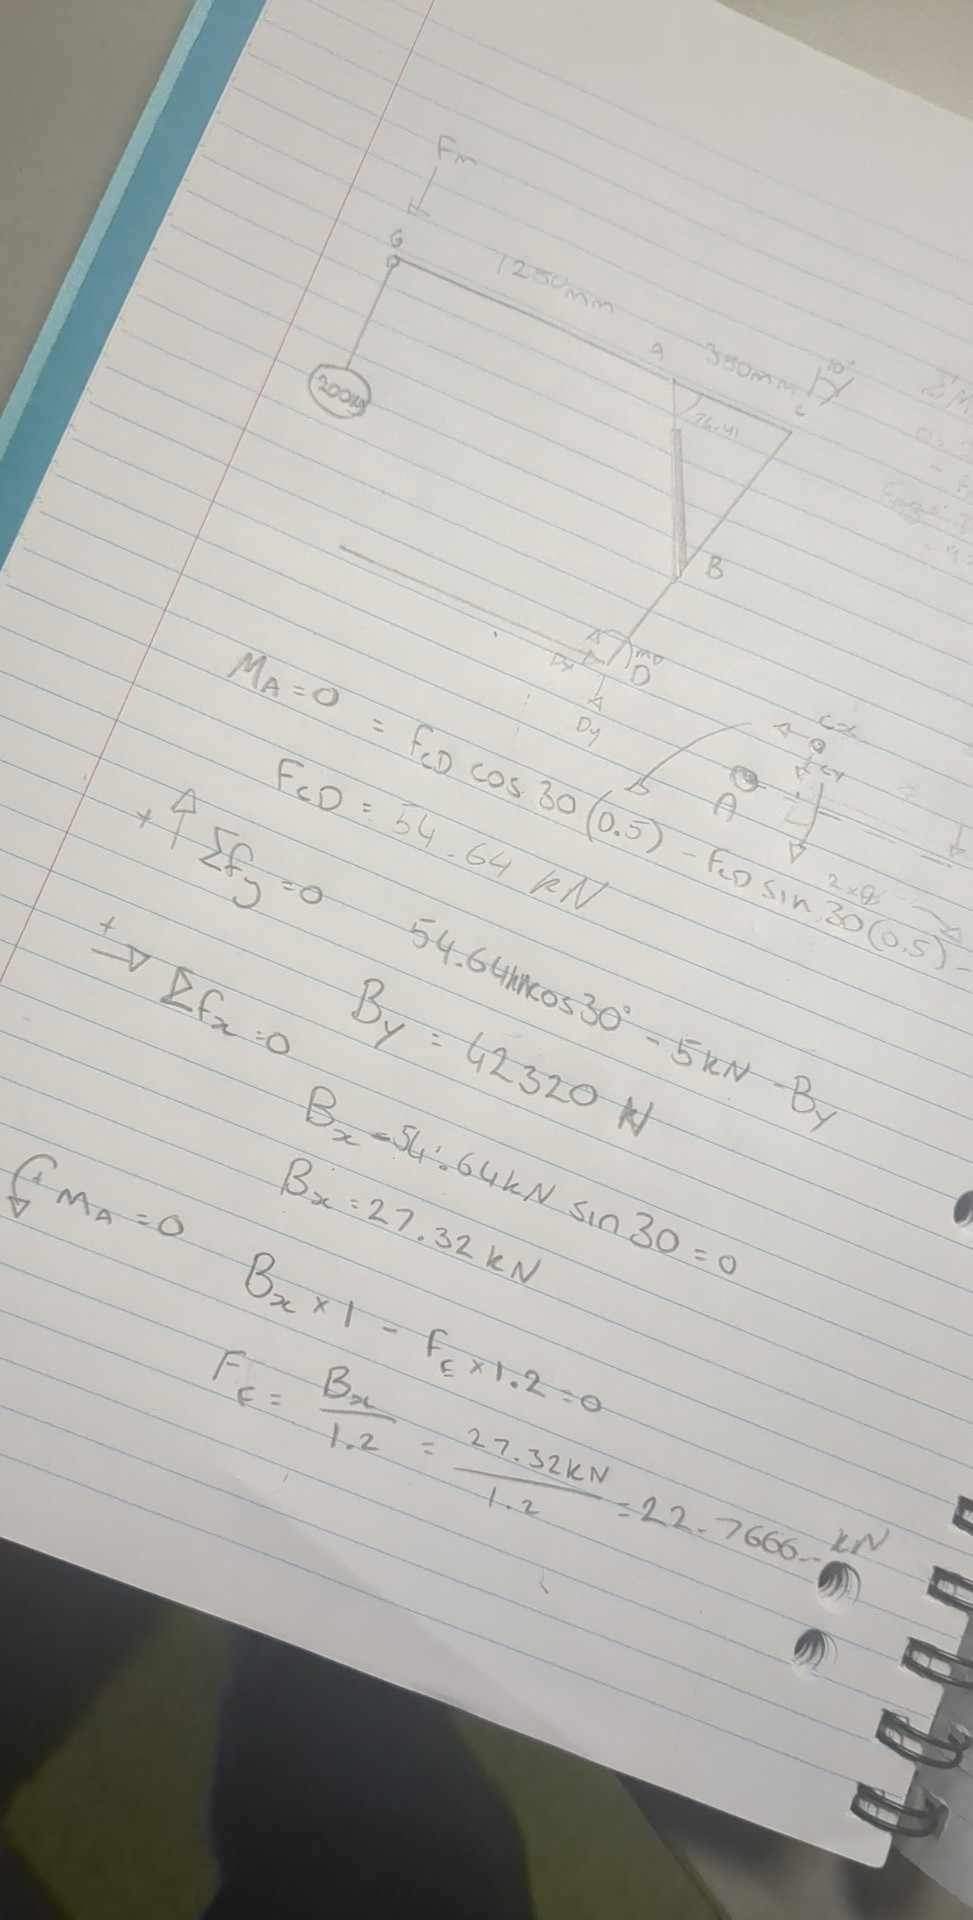 Fm
G
1250mm
A
350mm
10°
C
200kg
76.41
B
Dx
D
Dy
Cx
Cy
A
M_A = 0 = F_CD cos 30 (0.5) - F_CD sin 30 (0.5) -
F_CD = 54.64 kN
+↑ Σfy = 0 54.64kN cos30° - 5kN - By
By = 42320 N
+→ Σfx = 0
Bx - 54.64kN sin 30 = 0
Bx = 27.32 kN
+ M_A = 0
Bx × 1 - F_E × 1.2 = 0
F_E = Bx / 1.2 = 27.32kN / 1.2 = 22.7666.. kN